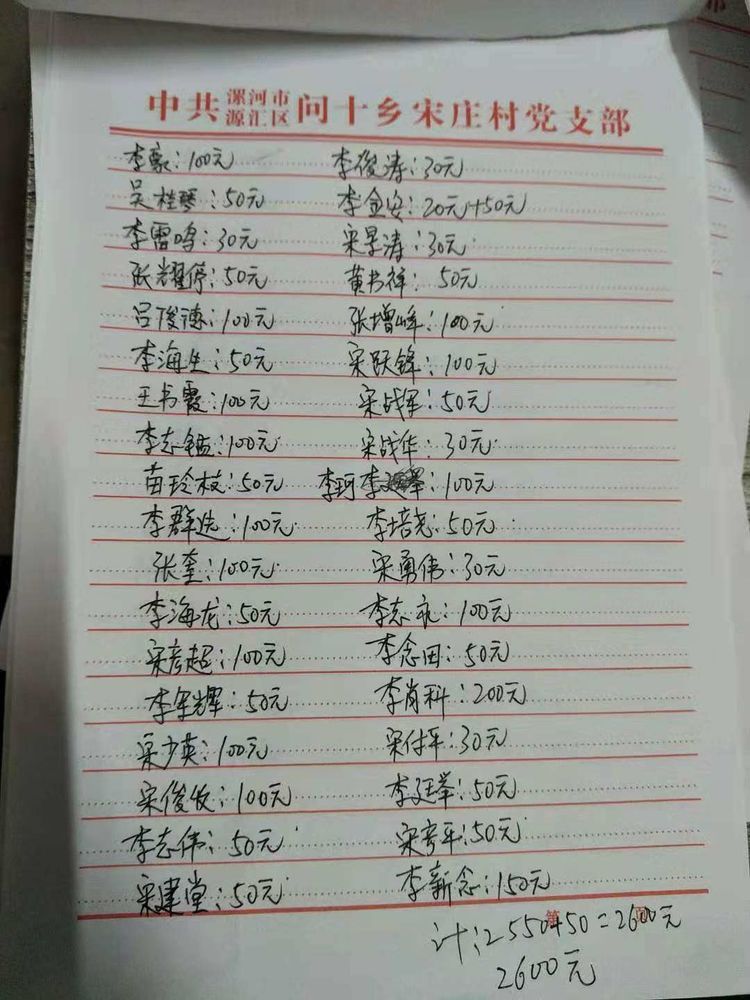 中共漯河市源汇区问十乡宋庄村党支部
李豪：100元 李俊涛：30元
吴桂琴：50元 李金安：20元+50元
李雷鸣：30元 宋旱涛：30元
张耀停：50元 黄书祥：50元
吕俊德：100元 张增峰：100元
李海生：50元 宋跃锋：100元
王书霞：100元 宋战军：50元
李志锰：100元 宋战华：30元
苗玲枝：50元 李珂：100元
李群选：100元 李培尧：50元
张奎：100元 宋勇伟：30元
李海龙：50元 李志永：100元
宋彦超：100元 李念田：50元
李军辉：50元 李肖科：200元
宋少英：100元 宋付军：30元
宋俊收：100元 李廷举：50元
李志伟：50元 宋彦平：50元
宋建堂：50元 李新念：150元
计：2550+50=2600元
2600元